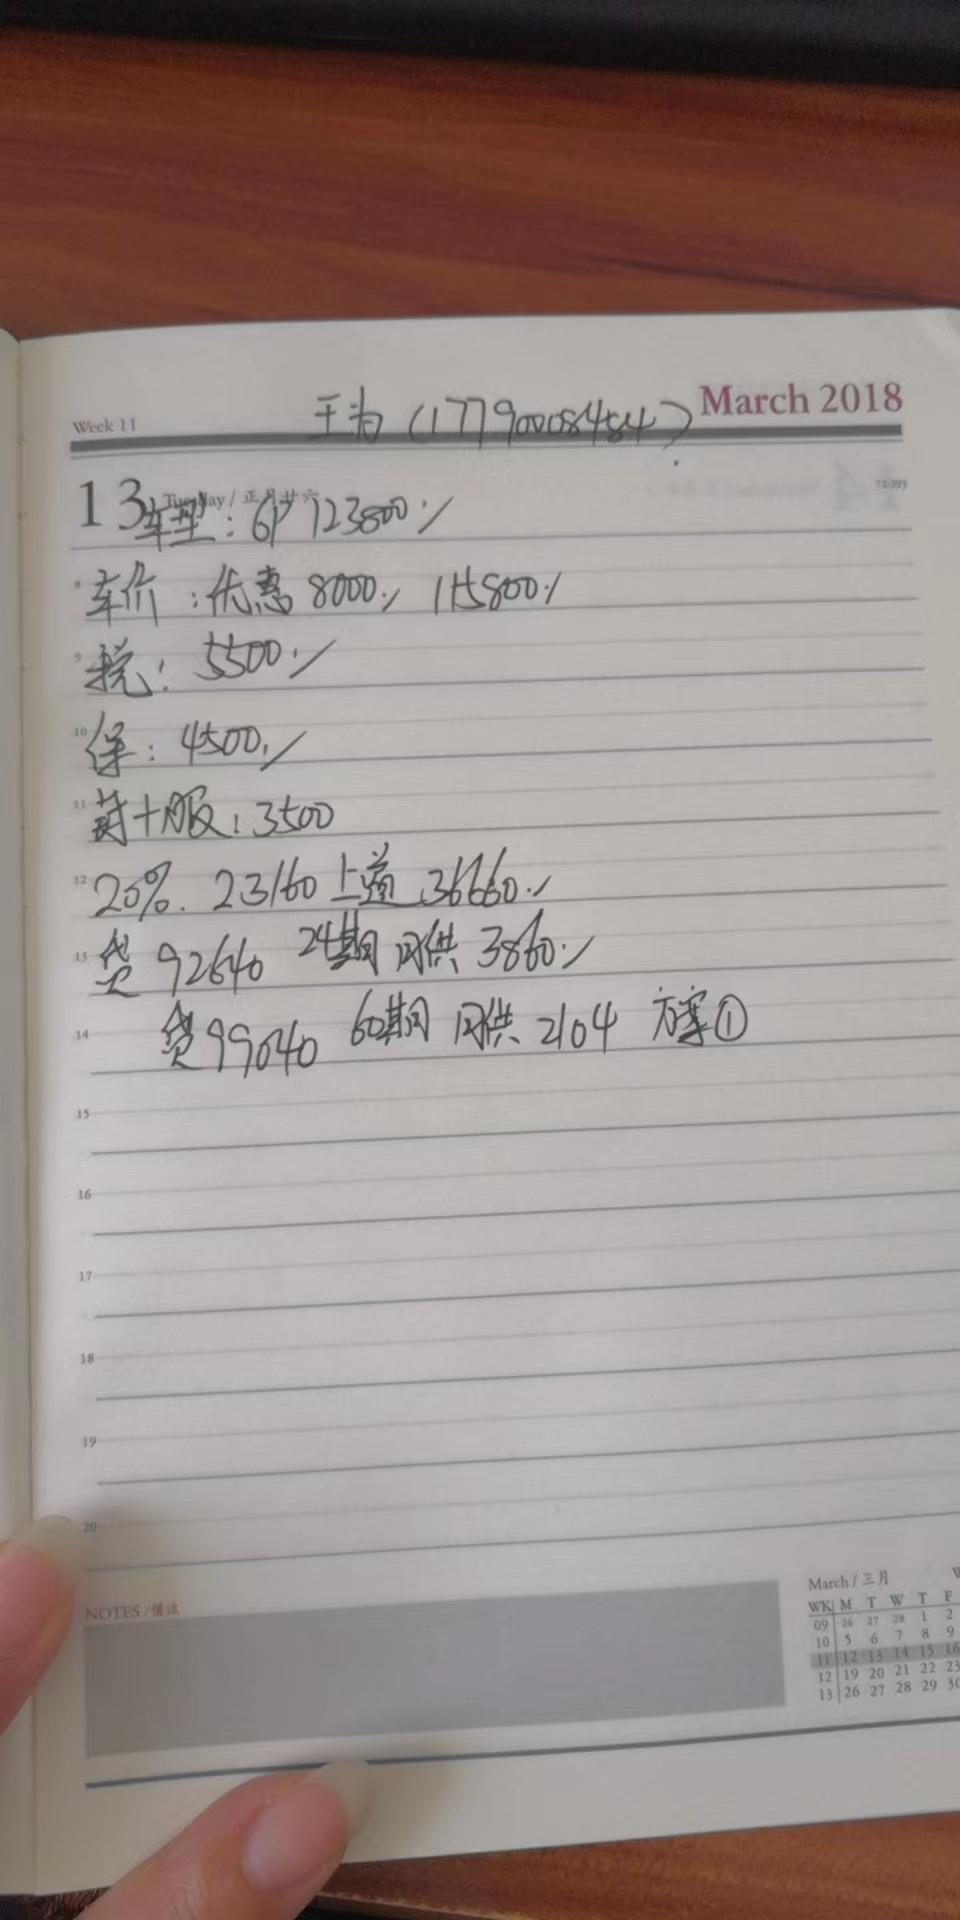 Week 11
王为 (17790008484)
March 2018
13 Tuesday / 正月廿六
72/293
车型: 6P 123800./
8 车价:优惠 8000./ 115800./
9 税: 5500./
10 保: 4500./
11 +服: 3500
12 20%. 23160 上道 36660./
13 贷 92640 24期 月供 3860./
14 贷99040 60期 月供 2104 方案①
15
16
17
18
19
20
NOTES /备注
March / 三月
WK M T W T F
09 26 27 28 1 2
10 5 6 7 8 9
11 12 13 14 15 16
12 19 20 21 22 23
13 26 27 28 29 30